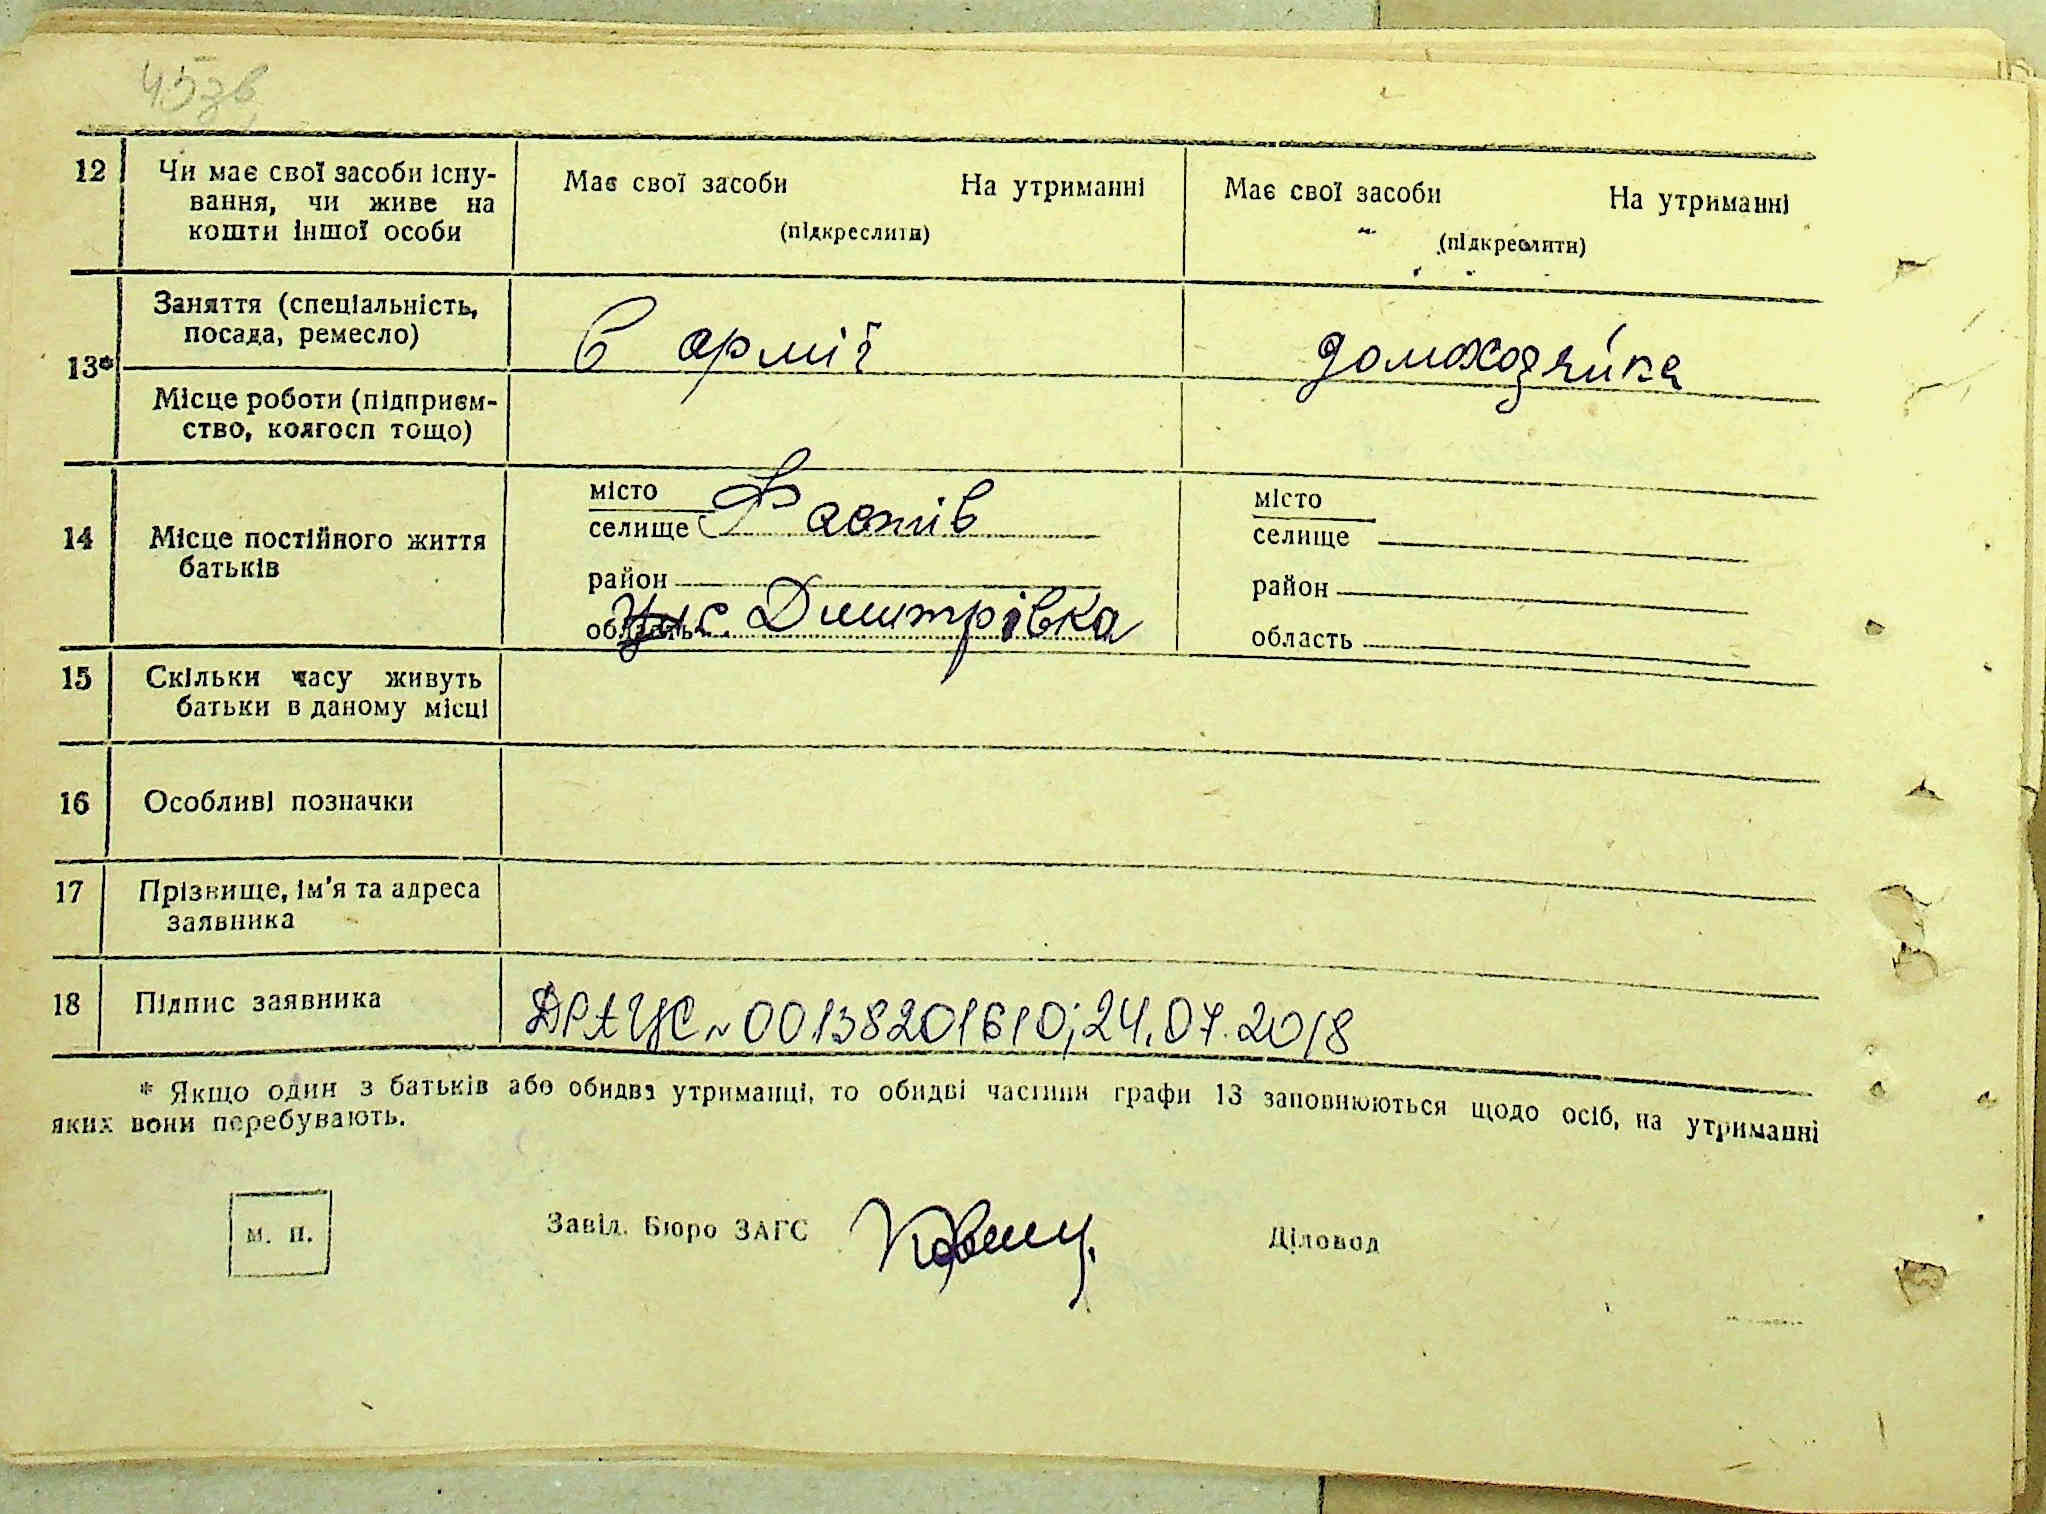 45зв
12 Чи має свої засоби існу-
вання, чи живе на
кошти іншої особи
Має свої засоби На утриманні
(підкреслити)
Має свої засоби На утриманні
(підкреслити)
13*
Заняття (спеціальність,
посада, ремесло)
В армії
домохозяйка
Місце роботи (підприєм-
ство, колгосп тощо)
14 Місце постійного життя
батьків
місто
селище Фастів
район
область с. Дмитрівка
місто
селище
район
область
15 Скільки часу живуть
батьки в даному місці
16 Особливі позначки
17 Прізвище, ім'я та адреса
заявника
18 Підпис заявника
ДРАЦС ~ 00138201610; 24.07.2018
* Якщо один з батьків або обидва утриманці, то обидві частини графи 13 заповнюються щодо осіб, на утриманні
яких вони перебувають.
м. п.
Завід. Бюро ЗАГС
Діловод